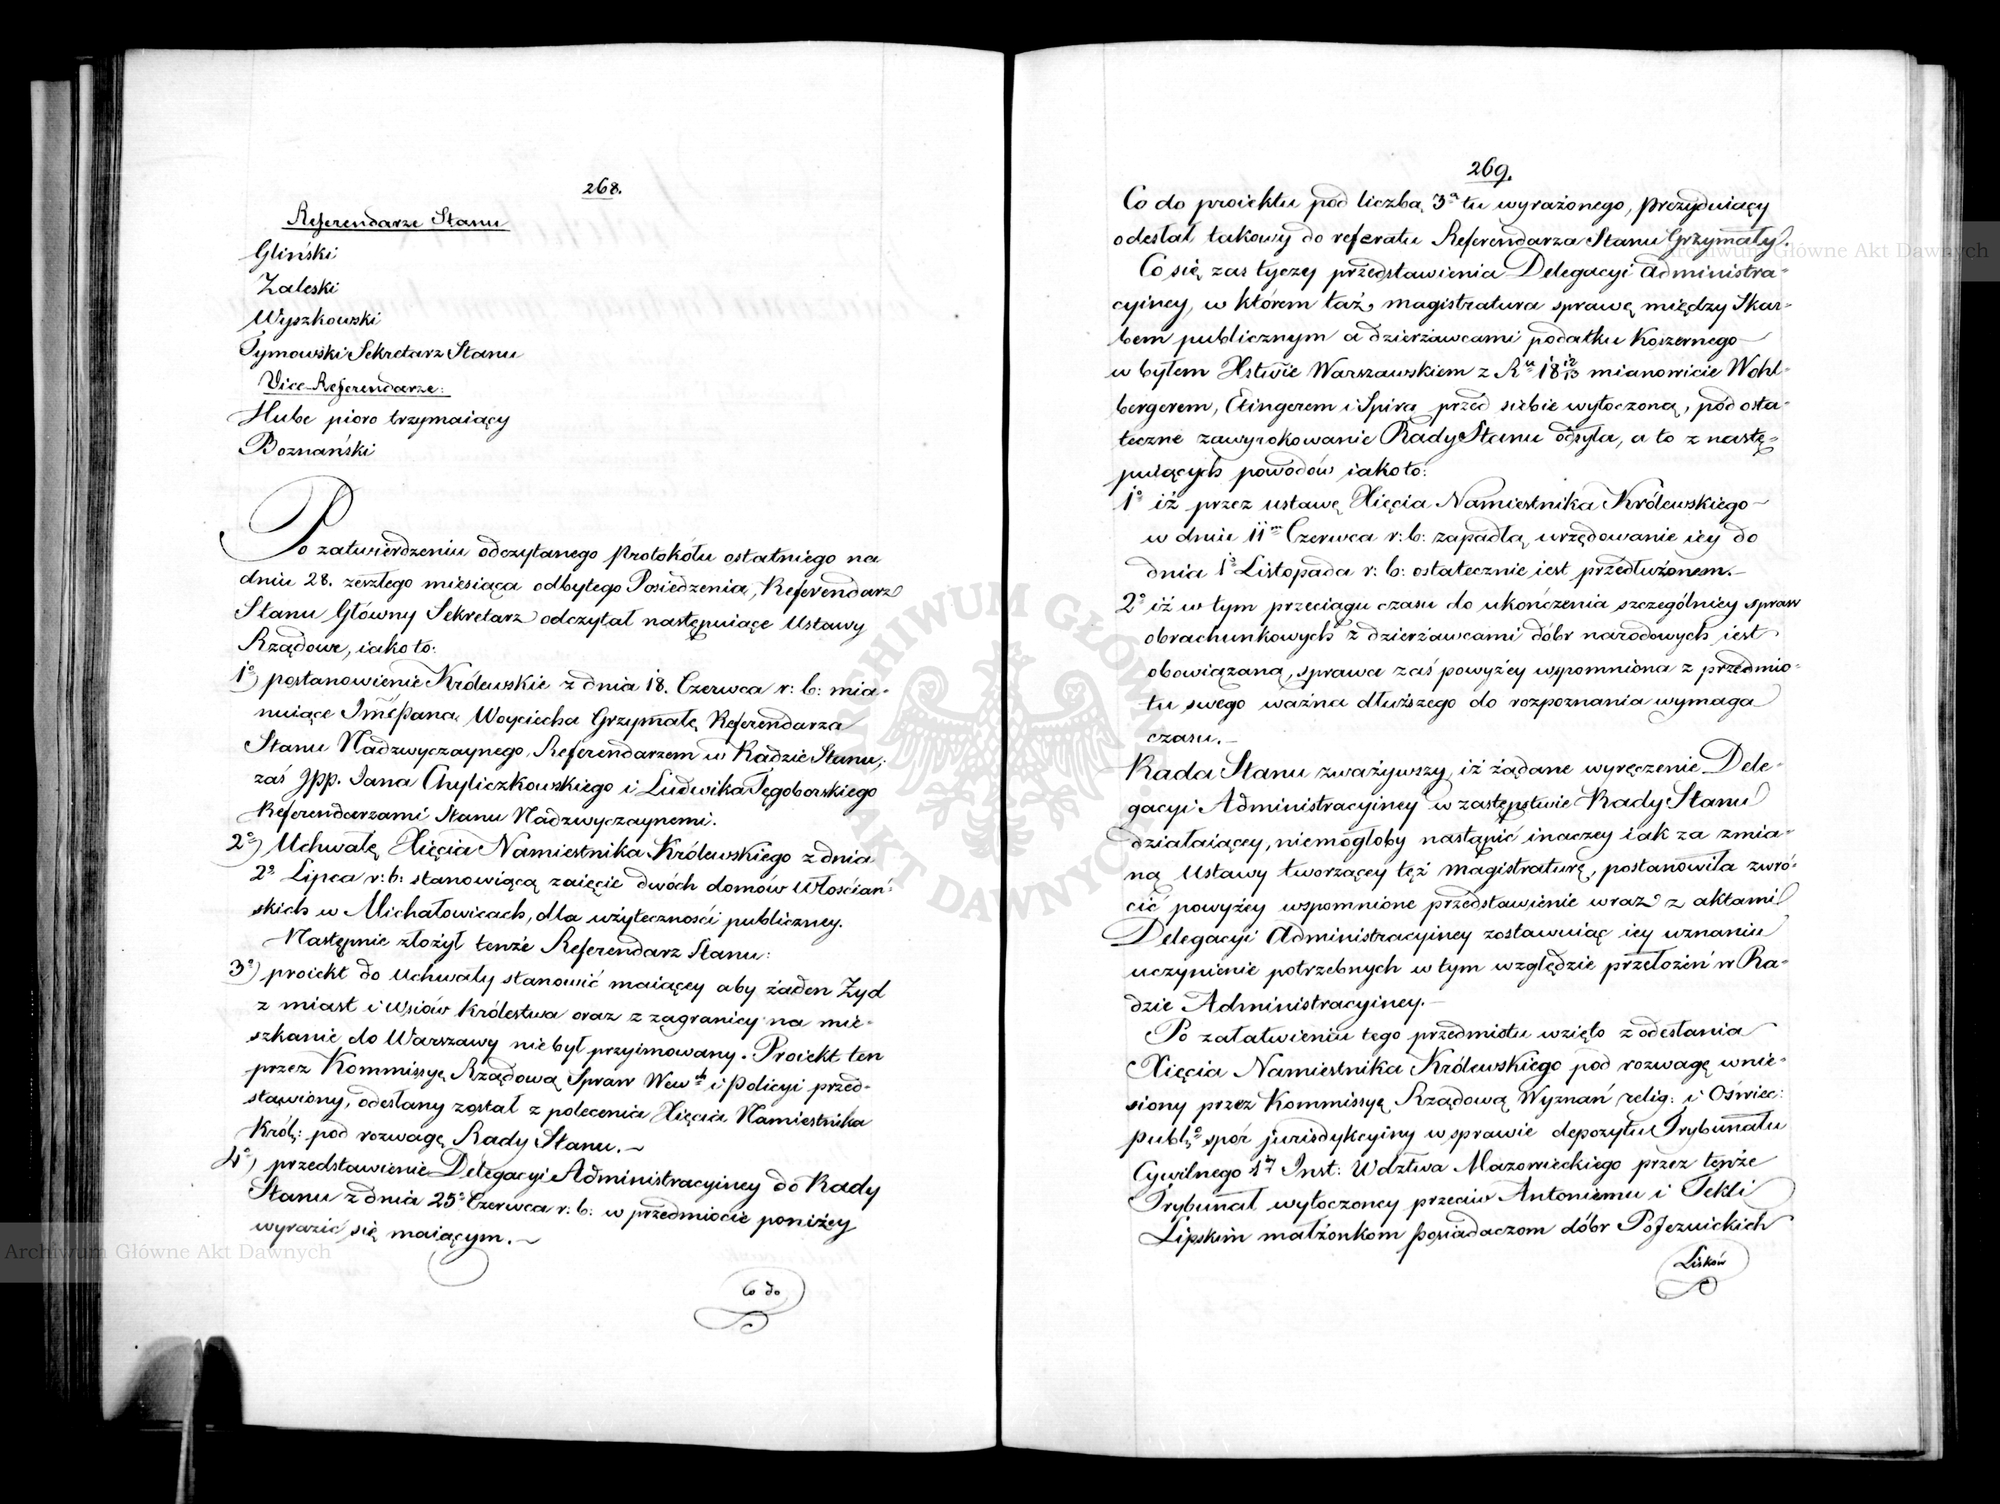 268.
Referendarze Stanu
Gliński
Zaleski
Wyszkowski
Tymowski Sekretarz Stanu
Vice-Referendarze:
Hube pioro trzymaiący
Boznański
Po zatwierdzeniu odczytanego protokółu ostatniego na
dniu 28. zeszłego miesiąca odbytego Posiedzenia, Referendarz
Stanu Główny Sekretarz odczytał następuiące Ustawy
Rządowe, iako to:
1º) postanowienie Królewskie z dnia 18. Czerwca r: b: mia-
nuiące Jmć Pana Woyciecha Grzymałę Referendarza
Stanu Nadzwyczaynego, Referendarzem w Radzie Stanu,
zaś JPP. Jana Chyliczkowskiego i Ludwika Tęgoborskiego
Referendarzami Stanu Nadzwyczaynemi.
2º) Uchwałę Xięcia Namiestnika Królewskiego z dnia
2º Lipca r: b: stanowiącą zaięcie dwóch domów Włościań-
skich w Michałowicach, dla użyteczności publiczney.
Następnie złożył tenże Referendarz Stanu:
3º) proiekt do Uchwały stanowić maiącey aby żaden Żyd
z miast i wsiów Królestwa oraz z zagranicy na mie-
szkanie do Warszawy nie był przyimowany. Proiekt ten
przez Kommissyę Rządową Spraw Wewch i Policyi przed-
stawiony, odesłany został z polecenia Xięcia Namiestnika
Król: pod rozwagę Rady Stanu.
4º) przedstawienie Delegacyi Administracyiney do Rady
Stanu z dnia 25º Czerwca r: b: w przedmiocie poniżey
wyrazić się maiącym.
Co do
269.
Co do proiektu pod liczbą 3ą tu wyrażonego, Prezyduiący
odesłał takowy do referatu Referendarza Stanu Grzymały.
Co się zaś tyczy przedstawienia Delegacyi Administra-
cyiney, w którem taż magistratura sprawę między Skar-
bem publicznym a dzierżawcami podatku Koszernego
w byłem Xstwie Warszawskiem z Ru 1812/13 mianowicie Wohl-
bergerem, Etingerem i Spirą przed siebie wytoczoną, pod osta-
teczne zawyrokowanie Rady Stanu odsyła, a to z nastę-
puiących powodów iako to:
1º iż przez ustawę Xięcia Namiestnika Królewskiego
w dniu 11m Czerwca r: b: zapadłą urzędowanie iey do
dnia 1º Listopada r: b: ostatecznie iest przedłużonem.
2º iż w tym przeciągu czasu do ukończenia szczególniey spraw
obrachunkowych z dzierżawcami dóbr narodowych iest
obowiązaną, sprawa zaś powyżey wspomniona z przedmio-
tu swego ważna dłuższego do rozpoznania wymaga
czasu.
Rada Stanu zważywszy, iż żądane wyręczenie Dele-
gacyi Administracyiney w zastępstwie Rady Stanu
działaiącey, niemogłoby nastąpić inaczey iak za zmia-
ną Ustawy tworzącey tęż magistraturę, postanowiła zwró-
cić powyżey wspomnione przedstawienie wraz z aktami
Delegacyi Administracyiney zostawuiąc iey uznaniu
uczynienie potrzebnych w tym względzie przełożeń w Ra-
dzie Administracyiney.
Po załatwieniu tego przedmiotu wzięto z odesłania
Xięcia Namiestnika Królewskiego pod rozwagę wnie-
siony przez Kommissyę Rządową Wyznań relig: i Oświec:
publ: spór jurisdykcyiny w sprawie depozytu Trybunału
Cywilnego 1éy Inst: Wdztwa Mazowieckiego przez tenże
Trybunał wytoczoney przeciw Antoniemu i Tekli
Lipskim małżonkom posiadaczom dóbr Pojezuickich
Lisków
Archiwum Główne Akt Dawnych
Archiwum Główne Akt Dawnych
ARCHIWUM GŁÓWNE AKT DAWNYCH